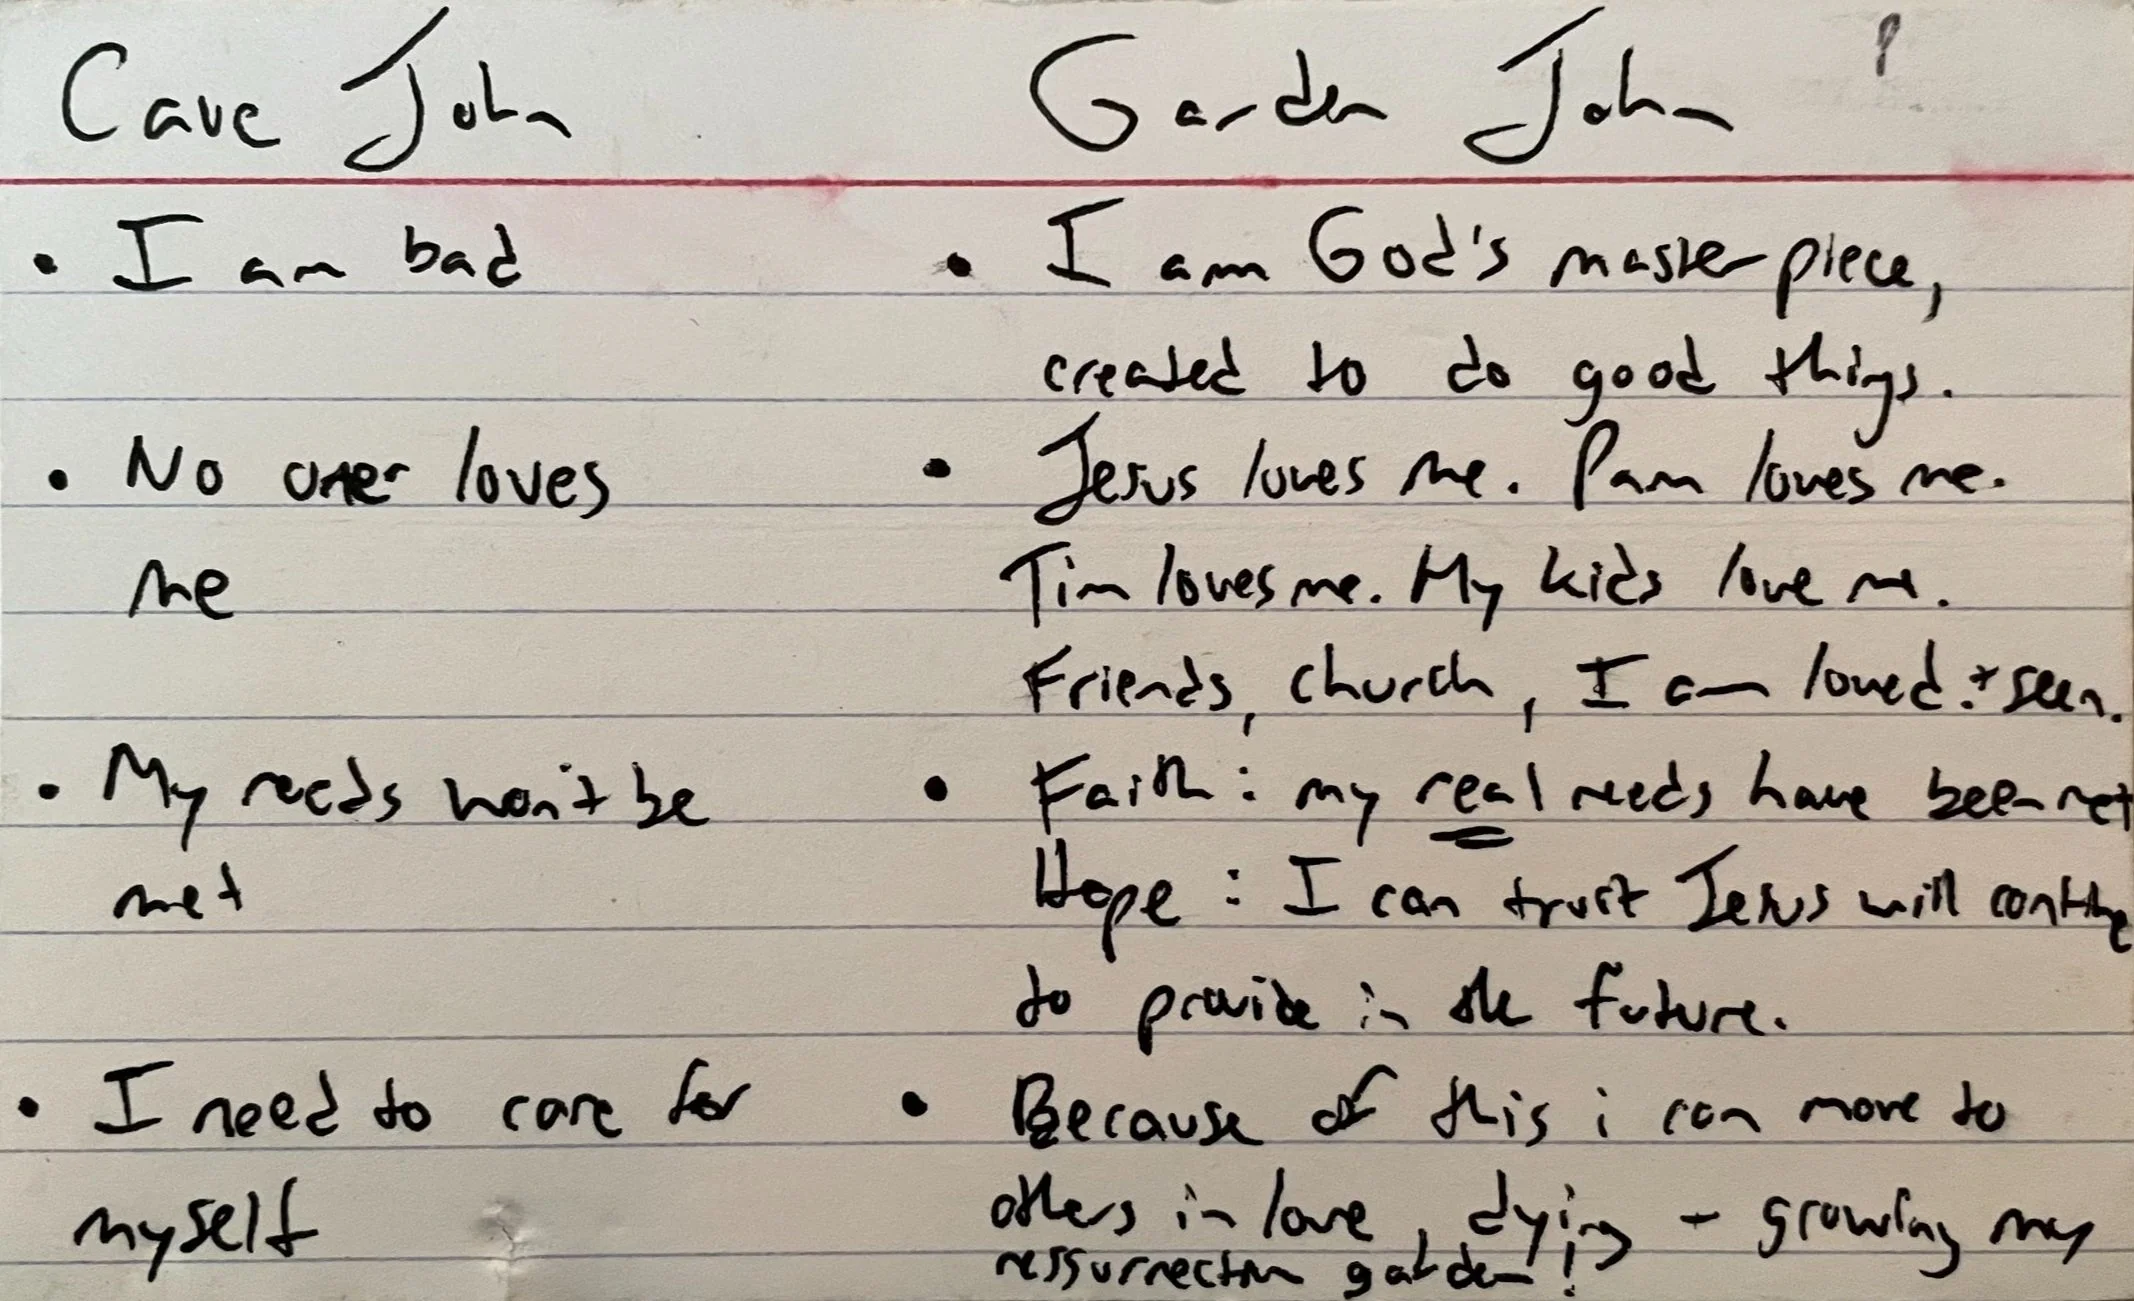 Cave John
Garden John
• I am bad
• I am God's masterpiece,
created to do good things.
• No one loves
me
• Jesus loves me. Pam loves me.
Tim loves me. My kids love me.
Friends, church, I am loved + seen.
• My needs won't be
met
• Faith: my real needs have been met
Hope: I can trust Jesus will continue
to provide in the future.
• I need to care for
myself
• Because of this i can move to
others in love, dying + growing my
ressurrection garden!